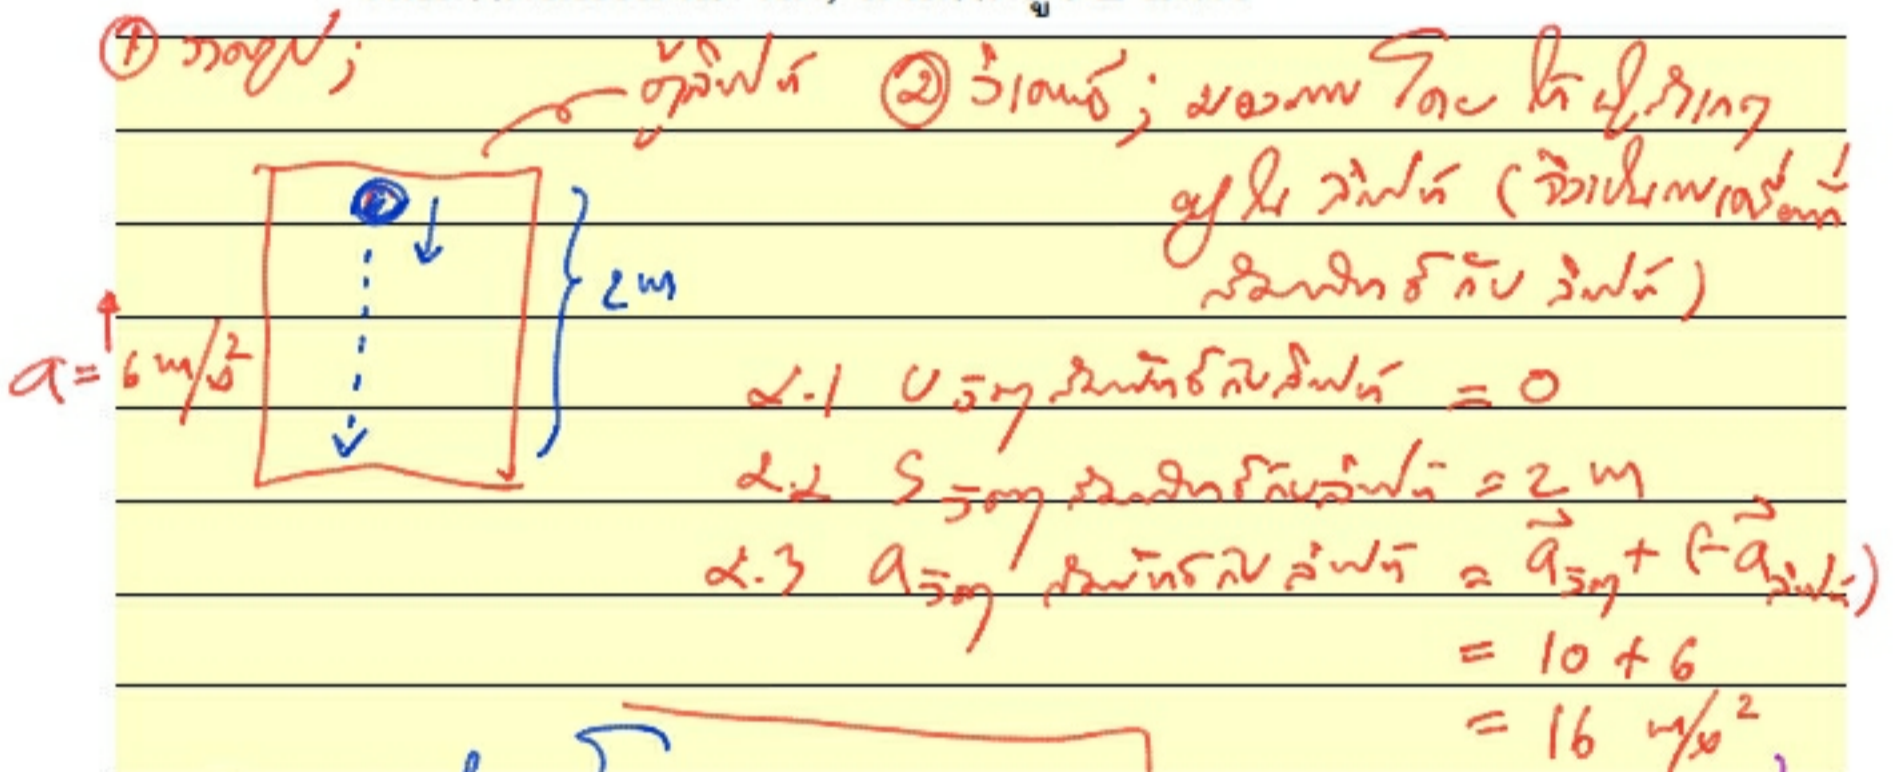 ① วาดรูป;
ตู้ลิฟท์
② วิเคราะห์; มองภาพ โดย ให้ ผู้สังเกต
อยู่ ใน ลิฟท์ (จึงเป็นการเคลื่อนที่
สัมพัทธ์ กับ ลิฟท์)
2 m
a = 6 m/s²
2.1 u วัตถุ สัมพัทธ์กับลิฟท์ = 0
2.2 S วัตถุ สัมพัทธ์กับลิฟท์ = 2 m
2.3 a วัตถุ สัมพัทธ์กับ ลิฟท์ = a⃗ วัตถุ + (-a⃗ ลิฟท์)
= 10 + 6
= 16 m/s²